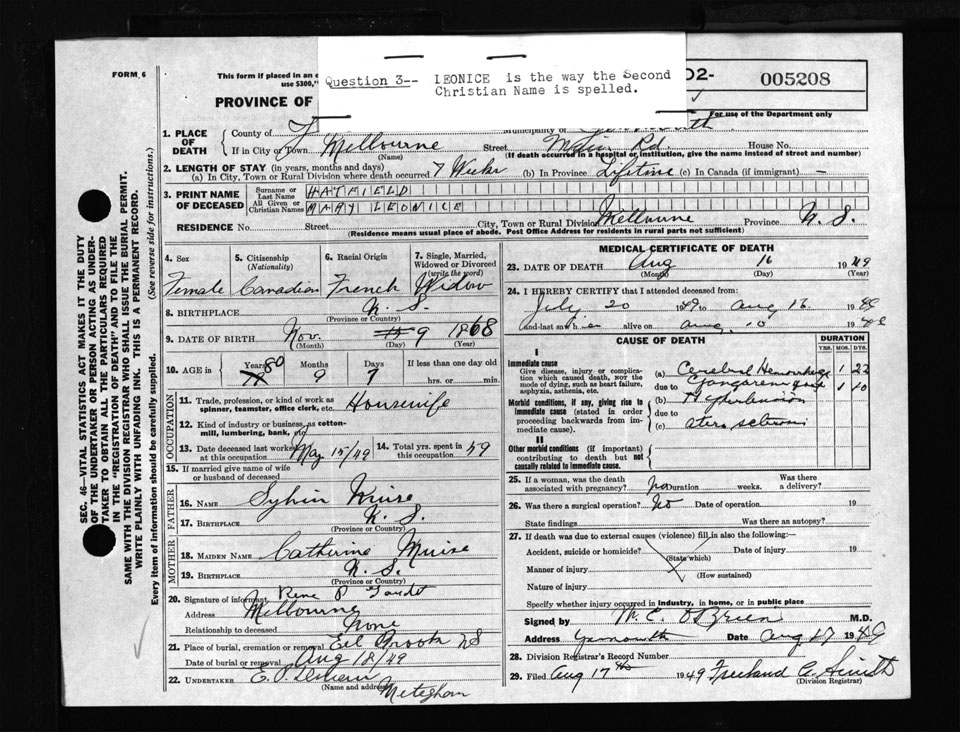 FORM 6
This form if placed in an e
use $300,"
PROVINCE OF
Question 3-- LEONICE is the way the Second
Christian Name is spelled.
02-
005208
For use of the Department only
1. PLACE OF DEATH
County of Y
Municipality of
If in City or Town Melbourne Street Road House No.
(Name) (If death occurred in a hospital or institution, give the name instead of street and number)
2. LENGTH OF STAY (in years, months and days)
(a) In City, Town or Rural Division where death occurred 7 Weeks (b) In Province Lifetime (c) In Canada (if immigrant) —
3. PRINT NAME OF DECEASED
Surname or Last Name HATFIELD
All Given or Christian Names MARY LEONICE
RESIDENCE No. Street City, Town or Rural Division Melbourne Province N. S.
(Residence means usual place of abode. Post Office Address for residents in rural parts not sufficient)
4. Sex 5. Citizenship (Nationality) 6. Racial Origin 7. Single, Married, Widowed or Divorced (write the word)
Female Canadian French Widow
8. BIRTHPLACE N. S.
(Province or Country)
9. DATE OF BIRTH Nov. 9 1868
(Month) (Day) (Year)
10. AGE in Years Months Days If less than one day old
80 9 7 hrs. or min.
OCCUPATION
11. Trade, profession or kind of work as spinner, teamster, office clerk, etc. Housewife
12. Kind of industry or business, as cotton-mill, lumbering, bank, etc.
13. Date deceased last worked at this occupation May 15/49 14. Total yrs. spent in this occupation 59
15. If married give name of wife or husband of deceased
FATHER
16. NAME Sylvin Muise
17. BIRTHPLACE N. S.
(Province or Country)
MOTHER
18. MAIDEN NAME Catherine Muise
19. BIRTHPLACE N. S.
(Province or Country)
20. Signature of informant Rene P
Address Melbourne
Relationship to deceased None
21. Place of burial, cremation or removal Eel Brook NS
Date of burial or removal Aug 18/49
22. UNDERTAKER E.
(Name and address) Meteghan
MEDICAL CERTIFICATE OF DEATH
23. DATE OF DEATH Aug 16 1949
(Month) (Day) (Year)
24. I HEREBY CERTIFY that I attended deceased from:
July 20 1949 to Aug 16 1949
and last saw her alive on Aug. 10 1949
CAUSE OF DEATH
DURATION
YRS. MOS. DYS.
I
Immediate cause
Give disease, injury or complication which caused death, not the mode of dying, such as heart failure, asphyxia, asthenia, etc.
(a) Cerebral Hemorrhage 1 22
due to Gangrene 1 10
Morbid conditions, if any, giving rise to immediate cause (stated in order proceeding backwards from immediate cause).
(b) Hypertension
due to
(c)
II
Other morbid conditions (if important) contributing to death but not causally related to immediate cause.
25. If a woman, was the death associated with pregnancy? No Duration weeks. Was there a delivery?
26. Was there a surgical operation? No Date of operation 19
State findings Was there an autopsy?
27. If death was due to external causes (violence) fill in also the following:—
Accident, suicide or homicide? Date of injury 19
(State which)
Manner of injury
(How sustained)
Nature of injury
Specify whether injury occurred in industry, in home, or in public place
Signed by W. C. O'Brien M.D.
Address Yarmouth Date Aug 17 1949
28. Division Registrar's Record Number
29. Filed Aug 17th 1949 Freeland A. Smith
(Division Registrar)
SEC. 46—VITAL STATISTICS ACT MAKES IT THE DUTY
OF THE UNDERTAKER OR PERSON ACTING AS UNDER-
TAKER TO OBTAIN ALL THE PARTICULARS REQUIRED
IN THE "REGISTRATION OF DEATH" AND TO FILE THE
SAME WITH THE DIVISION REGISTRAR WHO SHALL ISSUE THE BURIAL PERMIT.
WRITE PLAINLY WITH UNFADING INK. THIS IS A PERMANENT RECORD.
Every item of information should be carefully supplied. (See reverse side for instructions.)